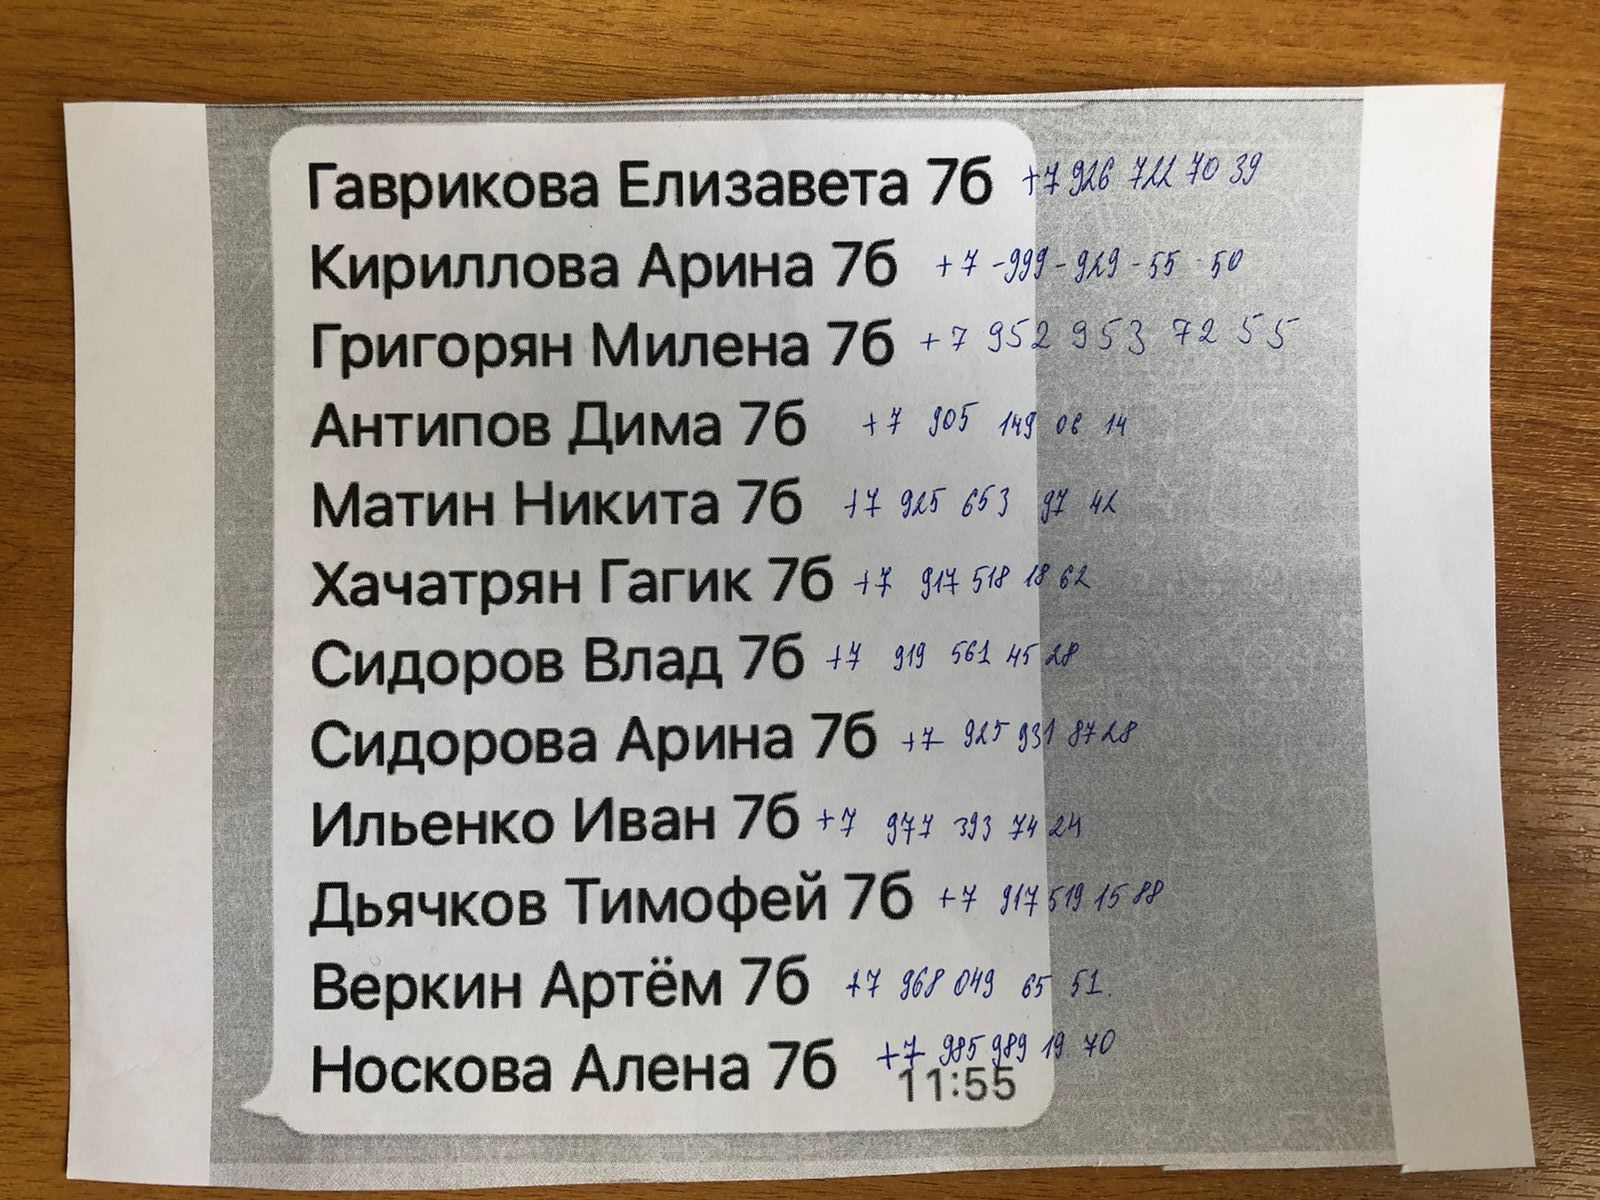 Гаврикова Елизавета 7б +7 926 722 70 39
Кириллова Арина 7б +7-999-929-55-50
Григорян Милена 7б +7 952 953 72 55
Антипов Дима 7б +7 905 149 06 14
Матин Никита 7б +7 925 653 97 42
Хачатрян Гагик 7б +7 917 518 18 62
Сидоров Влад 7б +7 919 561 45 28
Сидорова Арина 7б +7 925 931 87 28
Ильенко Иван 7б +7 977 393 74 24
Дьячков Тимофей 7б +7 917 519 15 88
Веркин Артём 7б +7 968 049 65 51.
Носкова Алена 7б +7 985 989 19 70
11:55